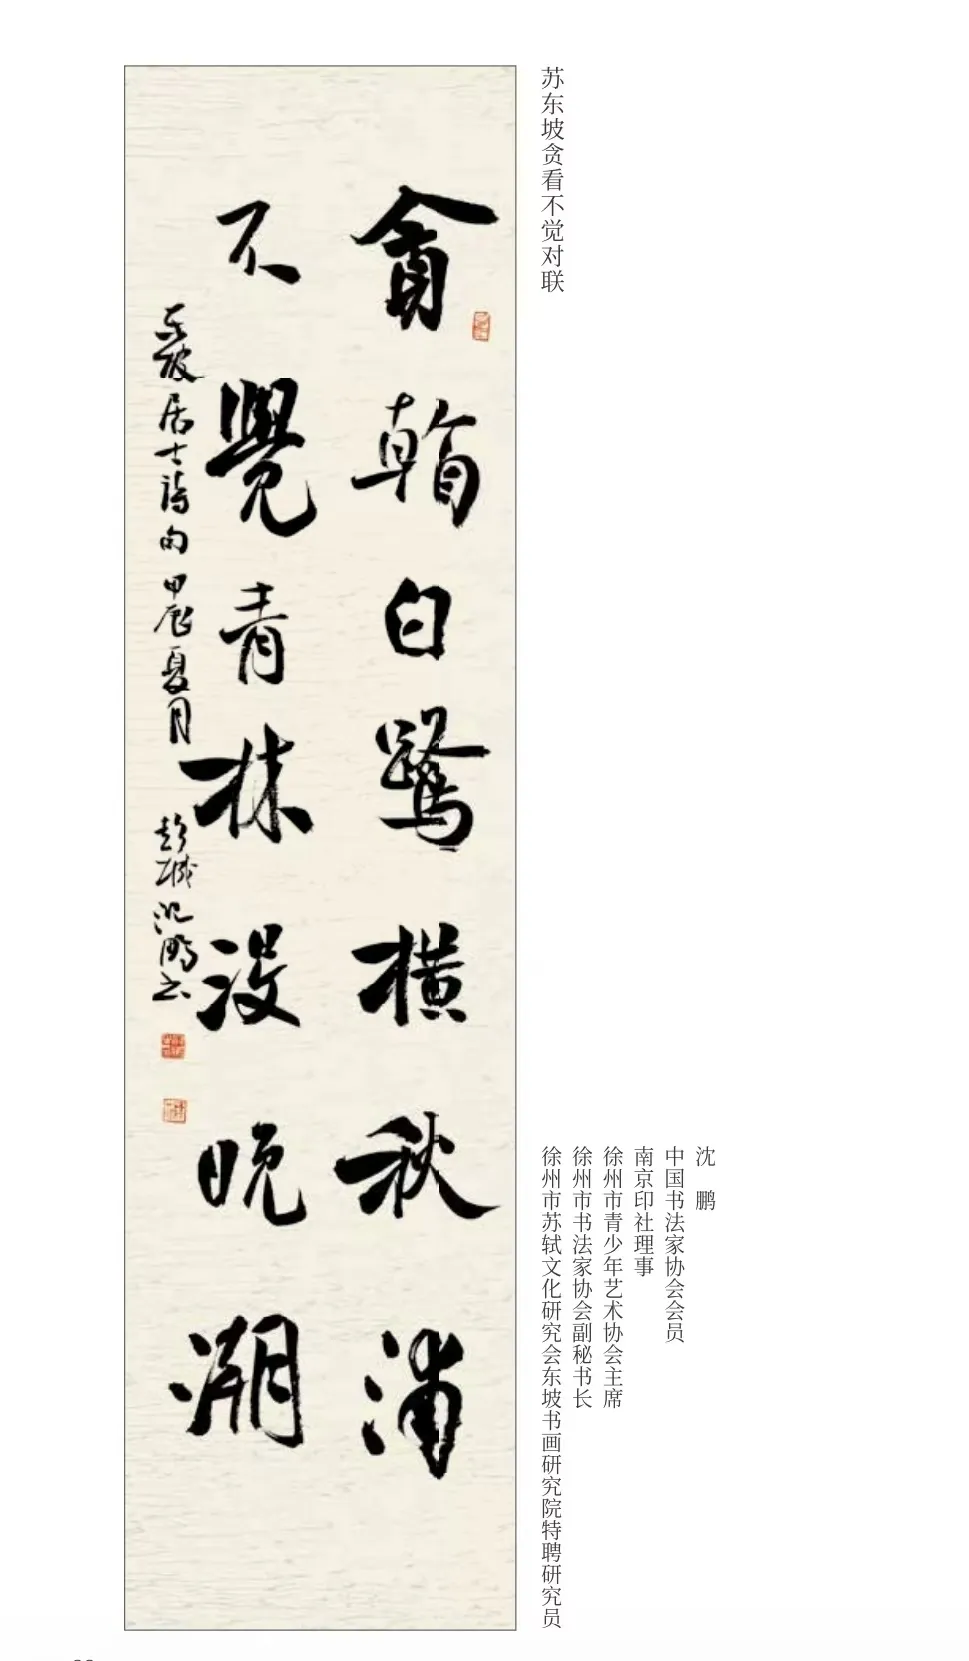 苏东坡贪看不觉对联
貪看白鷺橫秋浦
不覺青林沒晚潮
东坡居士詩句 甲辰夏月 彭城沈鵬书
沈 鹏
中国书法家协会会员
南京印社理事
徐州市青少年艺术协会主席
徐州市书法家协会副秘书长
徐州市苏轼文化研究会东坡书画研究院特聘研究员